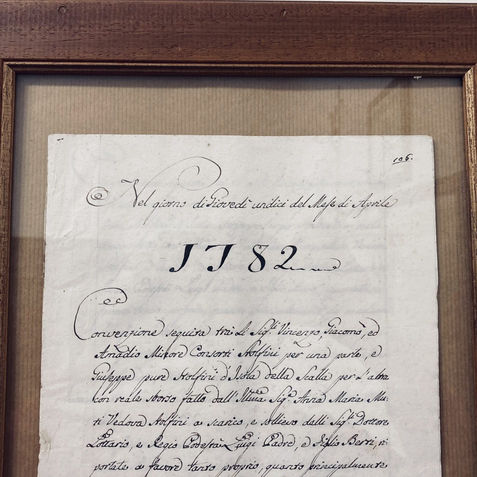 106.
Nel giorno di Giovedì undici del Mese di Aprile
1782
Convenzione seguita trà Li Sig.ri Vincenzo, Giacomo, ed
Amadio Consorti Stolfini per una parte, e
Giuseppe pure Stolfini d'Isola della Scalla per l'altra
con reale sborso fatto dall' Sig.a Anna Maria
Vedova Stolfini a scarico, e sollievo delli Sig.ri Dottore
Lottario, e Regio Podestà Luigi Padre, e Figlio Berri,
portate a favore tanto proprio, quanto principalmente